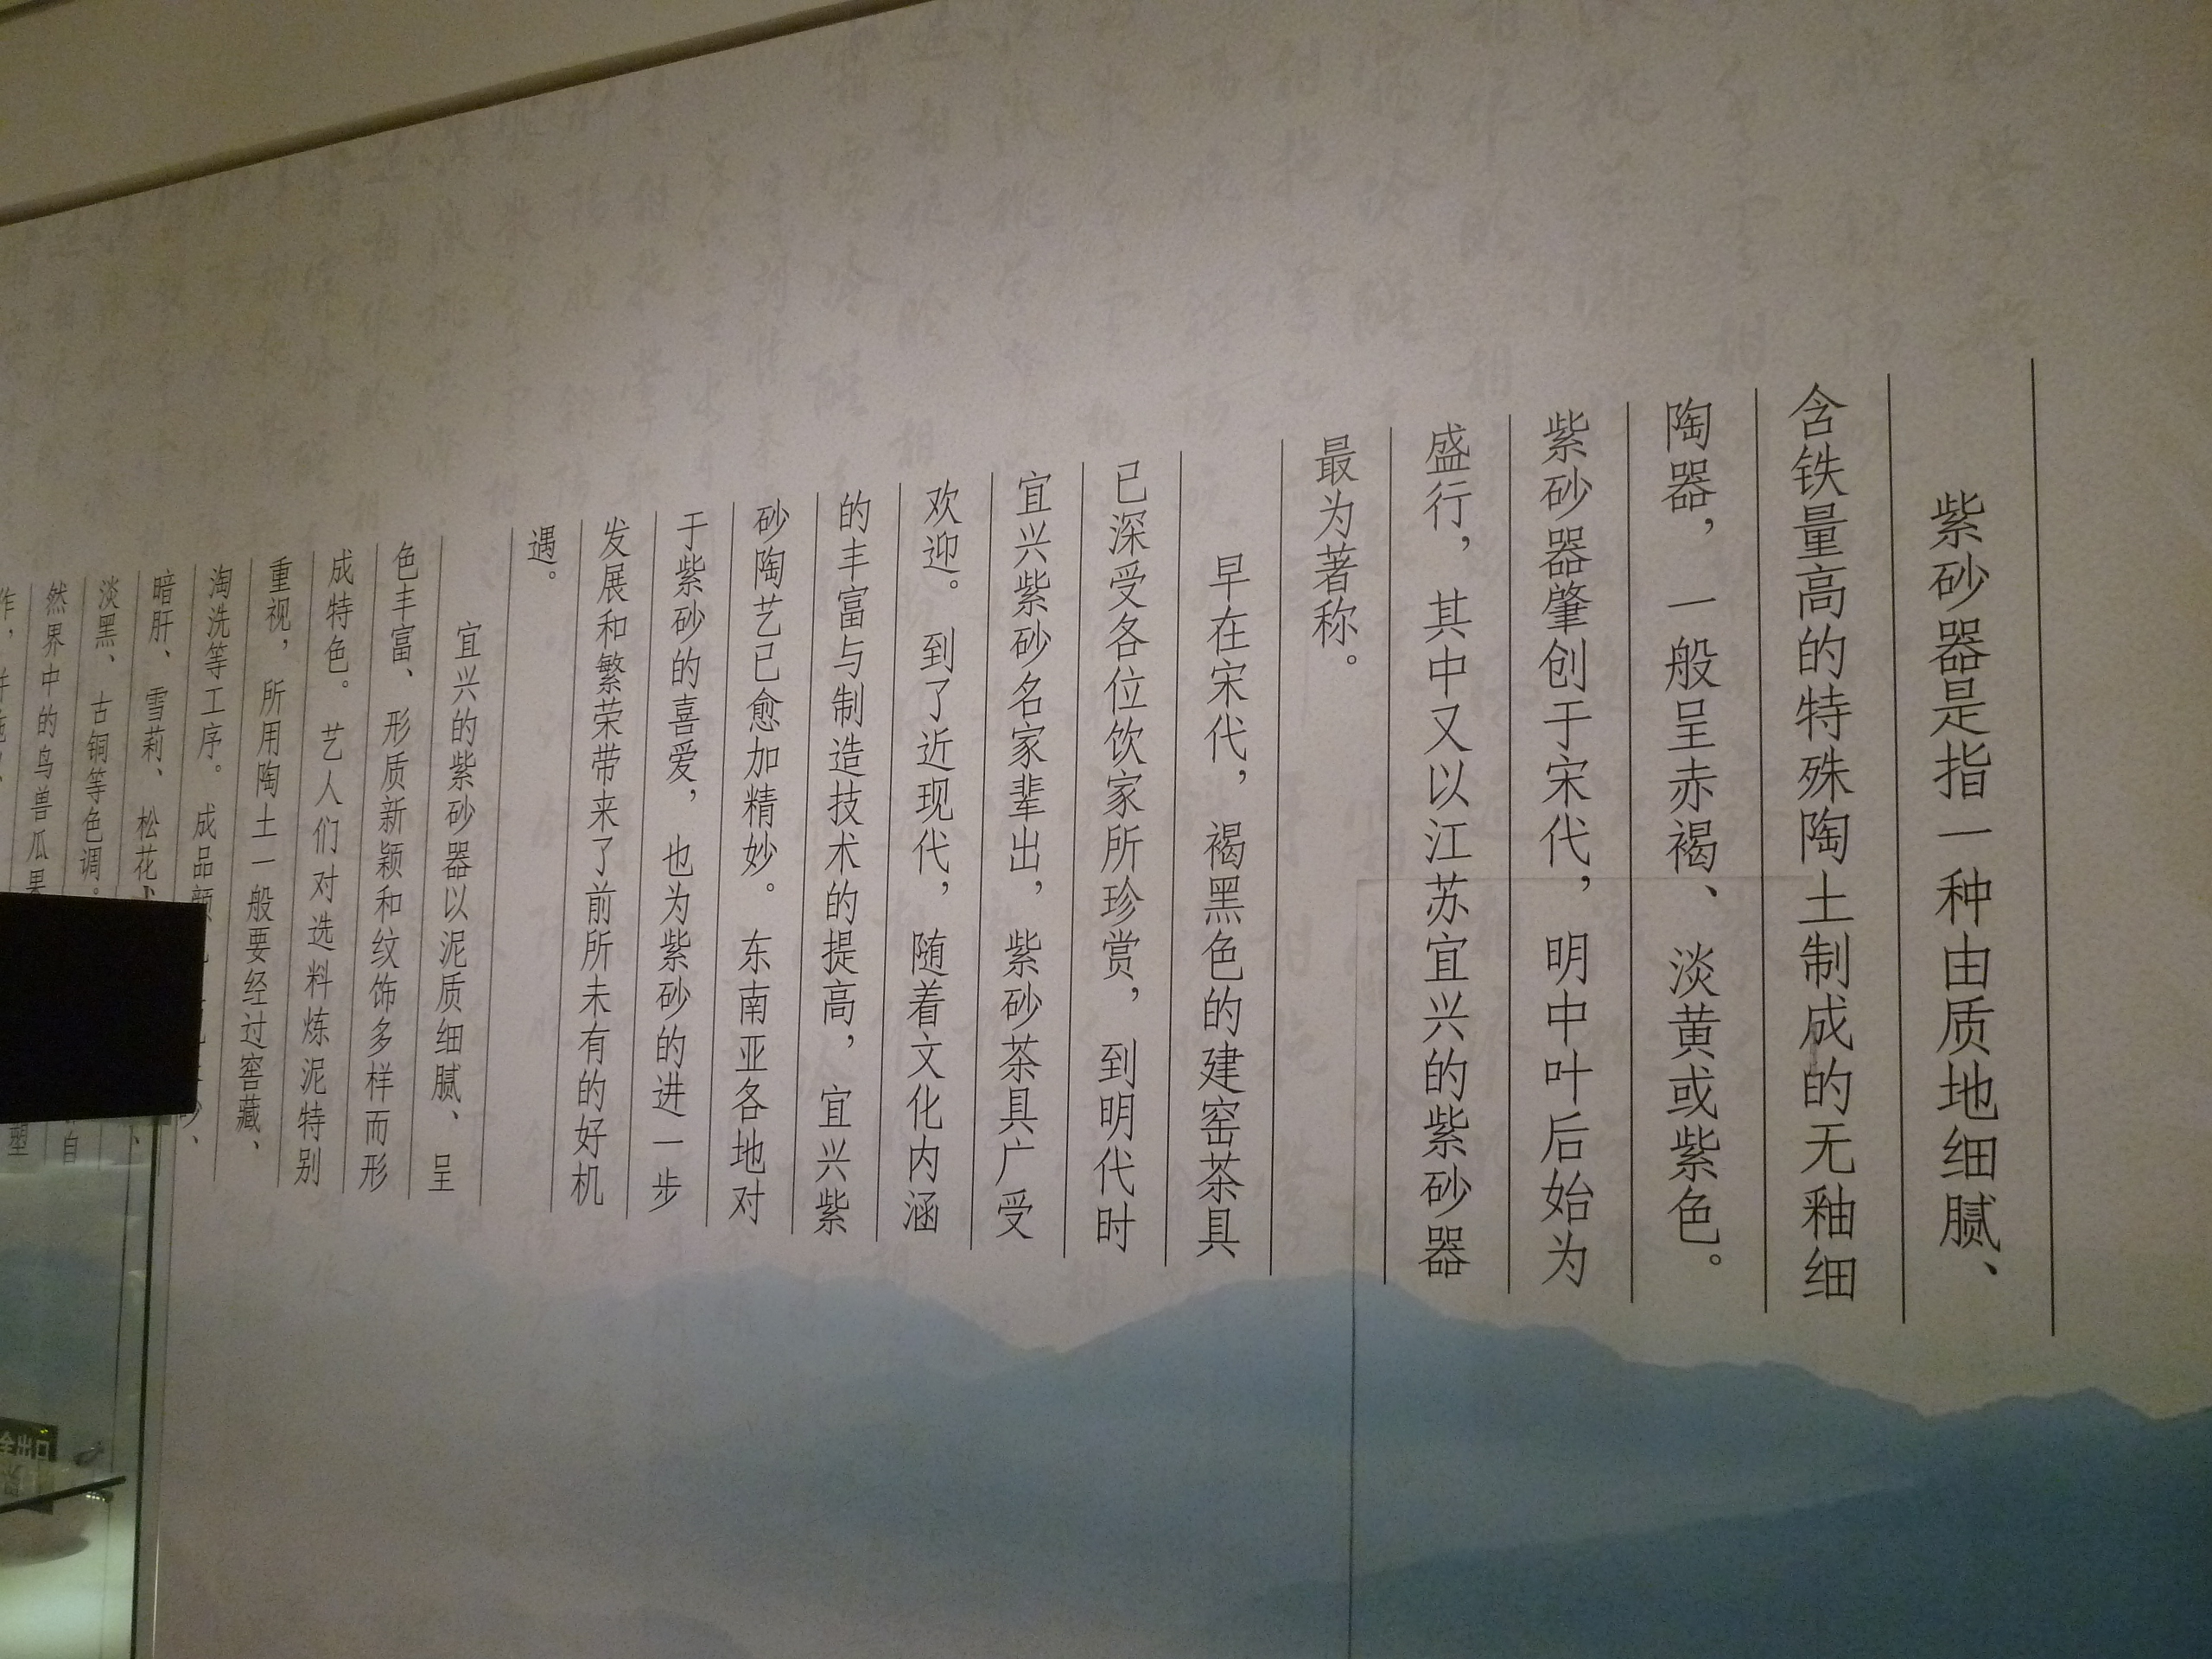 紫砂器是指一种由质地细腻、
含铁量高的特殊陶土制成的无釉细
陶器，一般呈赤褐、淡黄或紫色。
紫砂器肇创于宋代，明中叶后始为
盛行，其中又以江苏宜兴的紫砂器
最为著称。
早在宋代，褐黑色的建窑茶具
已深受各位饮家所珍赏，到明代时
宜兴紫砂名家辈出，紫砂茶具广受
欢迎。到了近现代，随着文化内涵
的丰富与制造技术的提高，宜兴紫
砂陶艺已愈加精妙。东南亚各地对
于紫砂的喜爱，也为紫砂的进一步
发展和繁荣带来了前所未有的好机
遇。
宜兴的紫砂器以泥质细腻、呈
色丰富、形质新颖和纹饰多样而形
成特色。艺人们对选料炼泥特别
重视，所用陶土一般要经过窖藏、
淘洗等工序。成品颜
暗肝、雪莉、松花
淡黑、古铜等色调。
然界中的鸟兽瓜果
作，
自
塑
全出口